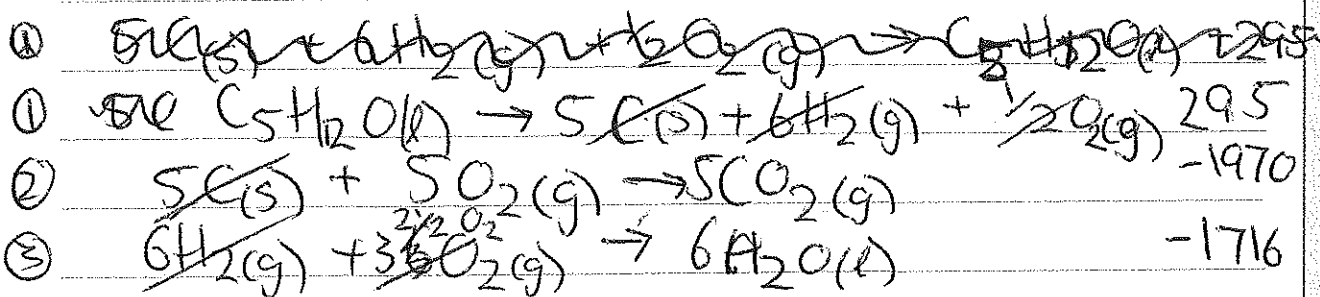 ① 5C(s) + 6H₂(g) + ½O₂(g) → C₅H₁₂O(l) +295
① C₅H₁₂O(l) → 5C(s) + 6H₂(g) + ½O₂(g) 295
② 5C(s) + 5O₂(g) → 5CO₂(g) -1970
2½O₂
③ 6H₂(g) + 3O₂(g) → 6H₂O(l) -1716